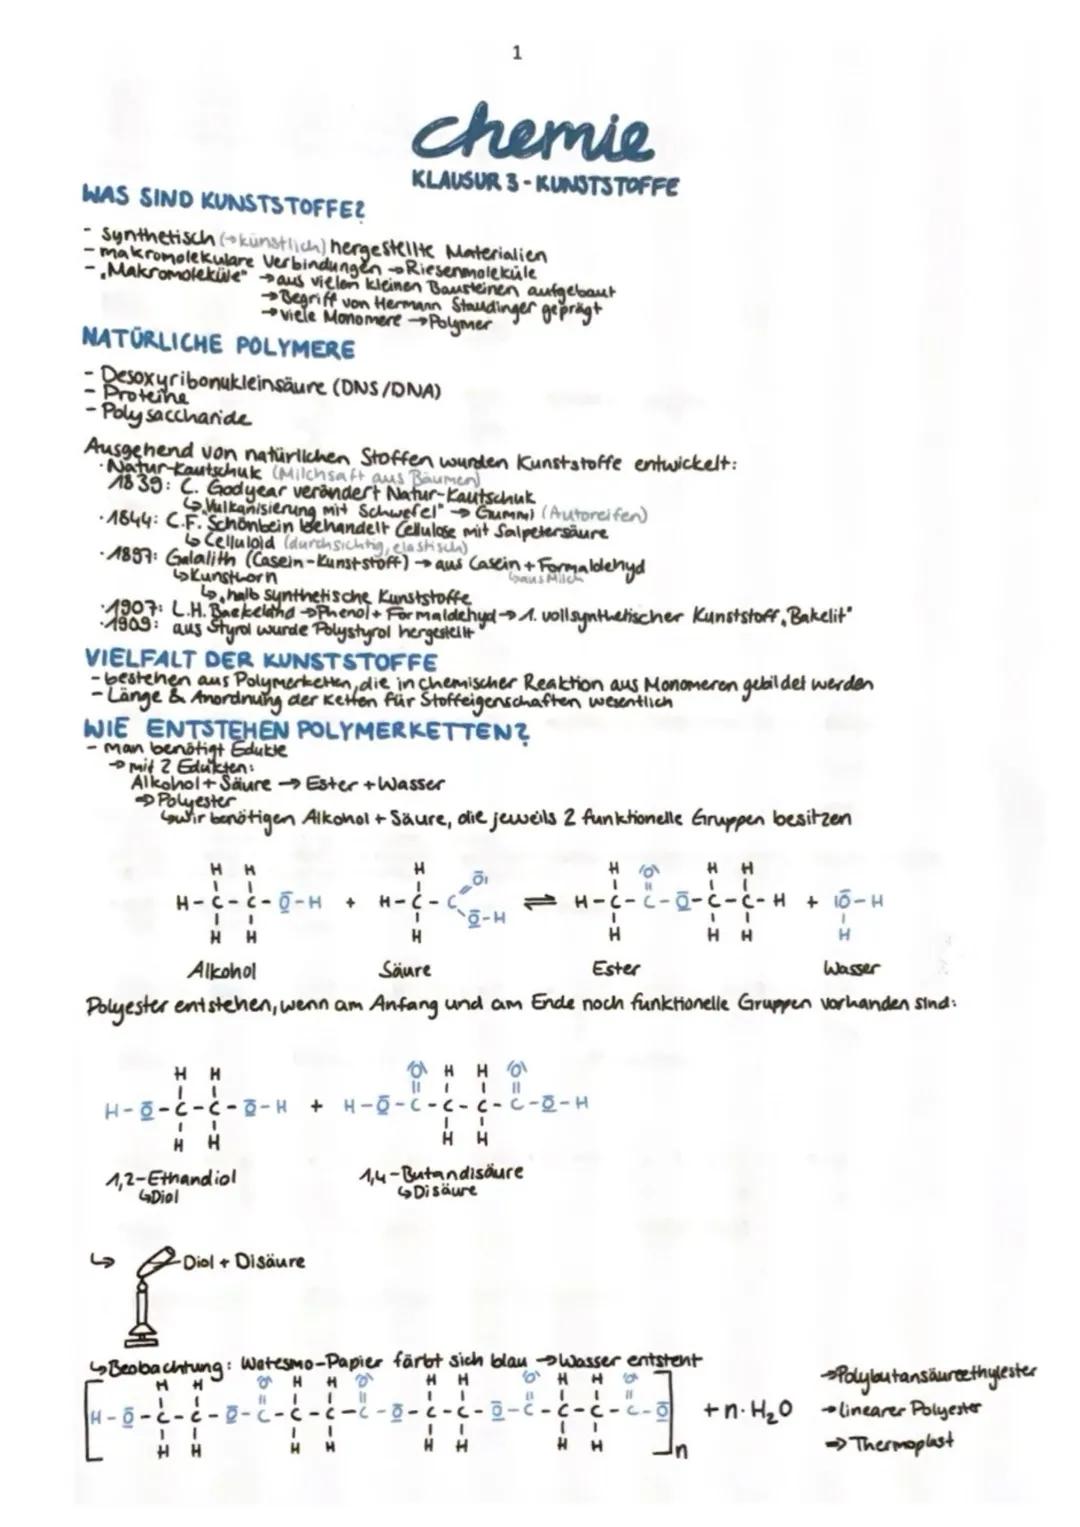 1
chemie
KLAUSUR 3 - KUNSTSTOFFE
WAS SIND KUNSTSTOFFE?
- Synthetisch (→künstlich) hergestellte Materialien
- makromolekulare Verbindungen →Riesenmoleküle
- „Makromoleküle" →aus vielen kleinen Bausteinen aufgebaut
→Begriff von Hermann Staudinger geprägt
→viele Monomere →Polymer
NATÜRLICHE POLYMERE
- Desoxyribonukleinsäure (DNS/DNA)
- Proteine
- Polysaccharide
Ausgehend von natürlichen Stoffen wurden Kunststoffe entwickelt:
·Natur-Kautschuk (Milchsaft aus Bäumen)
1839: C. Godyear verändert Natur-Kautschuk
↳„Vulkanisierung mit Schwefel" → Gummi (Autoreifen)
·1844: C.F. Schönbein behandelt Cellulose mit Salpetersäure
↳Celluloid (durchsichtig, elastisch)
·1897: Galalith (Casein-Kunststoff) → aus Casein + Formaldehyd
↳Kunsthorn
↳aus Milch
↳„halb synthetische Kunststoffe
·1907: L.H. Baekeland →Phenol + Formaldehyd → 1. vollsynthetischer Kunststoff „Bakelit"
·1909: aus Styrol wurde Polystyrol hergestellt
VIELFALT DER KUNSTSTOFFE
- bestehen aus Polymerketten, die in chemischer Reaktion aus Monomeren gebildet werden
- Länge & Anordnung der Ketten für Stoffeigenschaften wesentlich
WIE ENTSTEHEN POLYMERKETTEN?
- man benötigt Edukte
→ mit 2 Edukten:
Alkohol + Säure → Ester + Wasser
→ Polyester
↳wir benötigen Alkohol + Säure, die jeweils 2 funktionelle Gruppen besitzen
H H H H |O| H H
H-C-C-O-H + H-C-C O| O-H ⇌ H-C-C-O-C-C-H + |O-H
H H H H H H H
Alkohol Säure Ester Wasser
Polyester entstehen, wenn am Anfang und am Ende noch funktionelle Gruppen vorhanden sind:
H H |O| H H |O|
H-O-C-C-O-H + H-O-C-C-C-C-O-H
H H H H
1,2-Ethandiol 1,4-Butandisäure
↳Diol ↳Disäure
↳ Diol + Disäure
↳Beobachtung: Watesmo-Papier färbt sich blau →Wasser entsteht
H H |O| H H |O| H H |O| H H |O|
[H-O-C-C-O-C-C-C-C-O-C-C-O-C-C-C-C-O]n + n·H₂O
H H H H H H H H
→Polybutansäureethylester
→linearer Polyester
→ Thermoplast